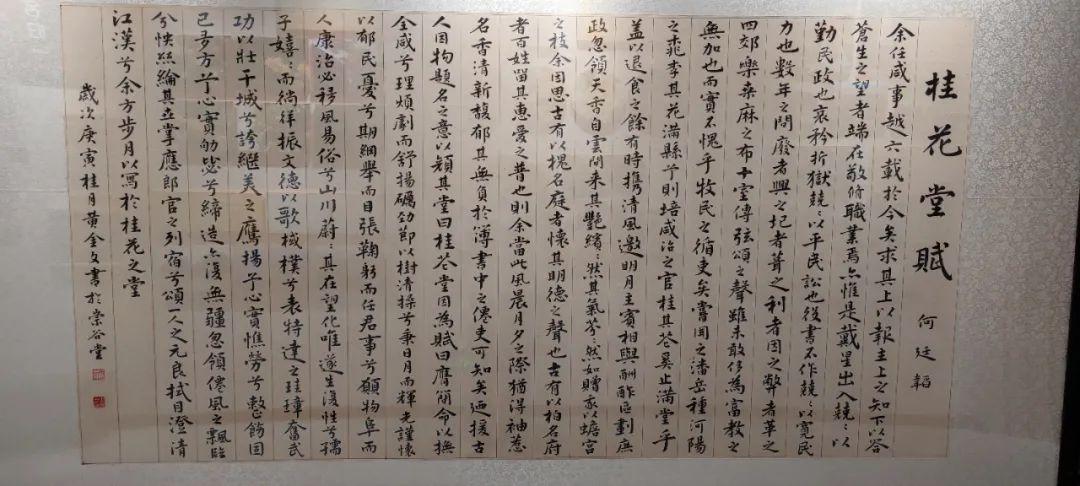 桂花堂賦
何廷韜
余任咸事越六載於今矣求其上以報主上之知下以答
蒼生之望者端在敬脩職業焉亦惟是戴星出入兢兢以
勤民政也哀矜折獄兢兢以平民訟也後書不作兢兢以寬民
力也數年之間廢者興之圮者葺之利者因之弊者革之
四郊樂桑麻之布十室傳弦頌之聲雖未敢侈為富教之
無加也而實不愧乎牧民之循吏矣嘗聞之潘岳種河陽
之桃李其花滿縣予則培咸治之官桂其花奚止滿堂乎
蓋以退食之餘有時攜清風邀明月主賓相與酬酢區劃庶
政忽領天香自雲間来其艷繽繽然其氣芬芬然如贈我以蟾宮
之枝余因思古有以槐名庭者懷其明德之聲也古有以柏名府
者百姓留其惠愛之昔也則余當此風晨月夕之際猶得袖惹
名香清新馥郁其無負於簿書中之僊吏可知矣迺援古
人因物題名之意以額其堂曰桂花堂因為賦曰膺簡命以撫
全咸兮理煩劇而舒揚礪勁節以樹清操兮秉日月而輝光謹懷
以郁民憂兮期綱舉而目張鞠躬而任君事兮願物阜而
人康治必移風易俗兮山川蔚蔚其在望化唯遂生復性兮孺
子嬉嬉而徜徉振文德以歌棫樸兮表特達之珪璋奮武
功以壯干城兮誇繼美之鷹揚予心實憔勞兮整飭固
已多方予心實劬毖兮締造亦復無疆忽領僊風之飄臨
兮怏絲綸其並掌應郎官之列宿兮頌一人之元良拭目澄清
江漢兮余方步月以寫於桂花之堂
歲次庚寅桂月黃金文書於崇谷堂